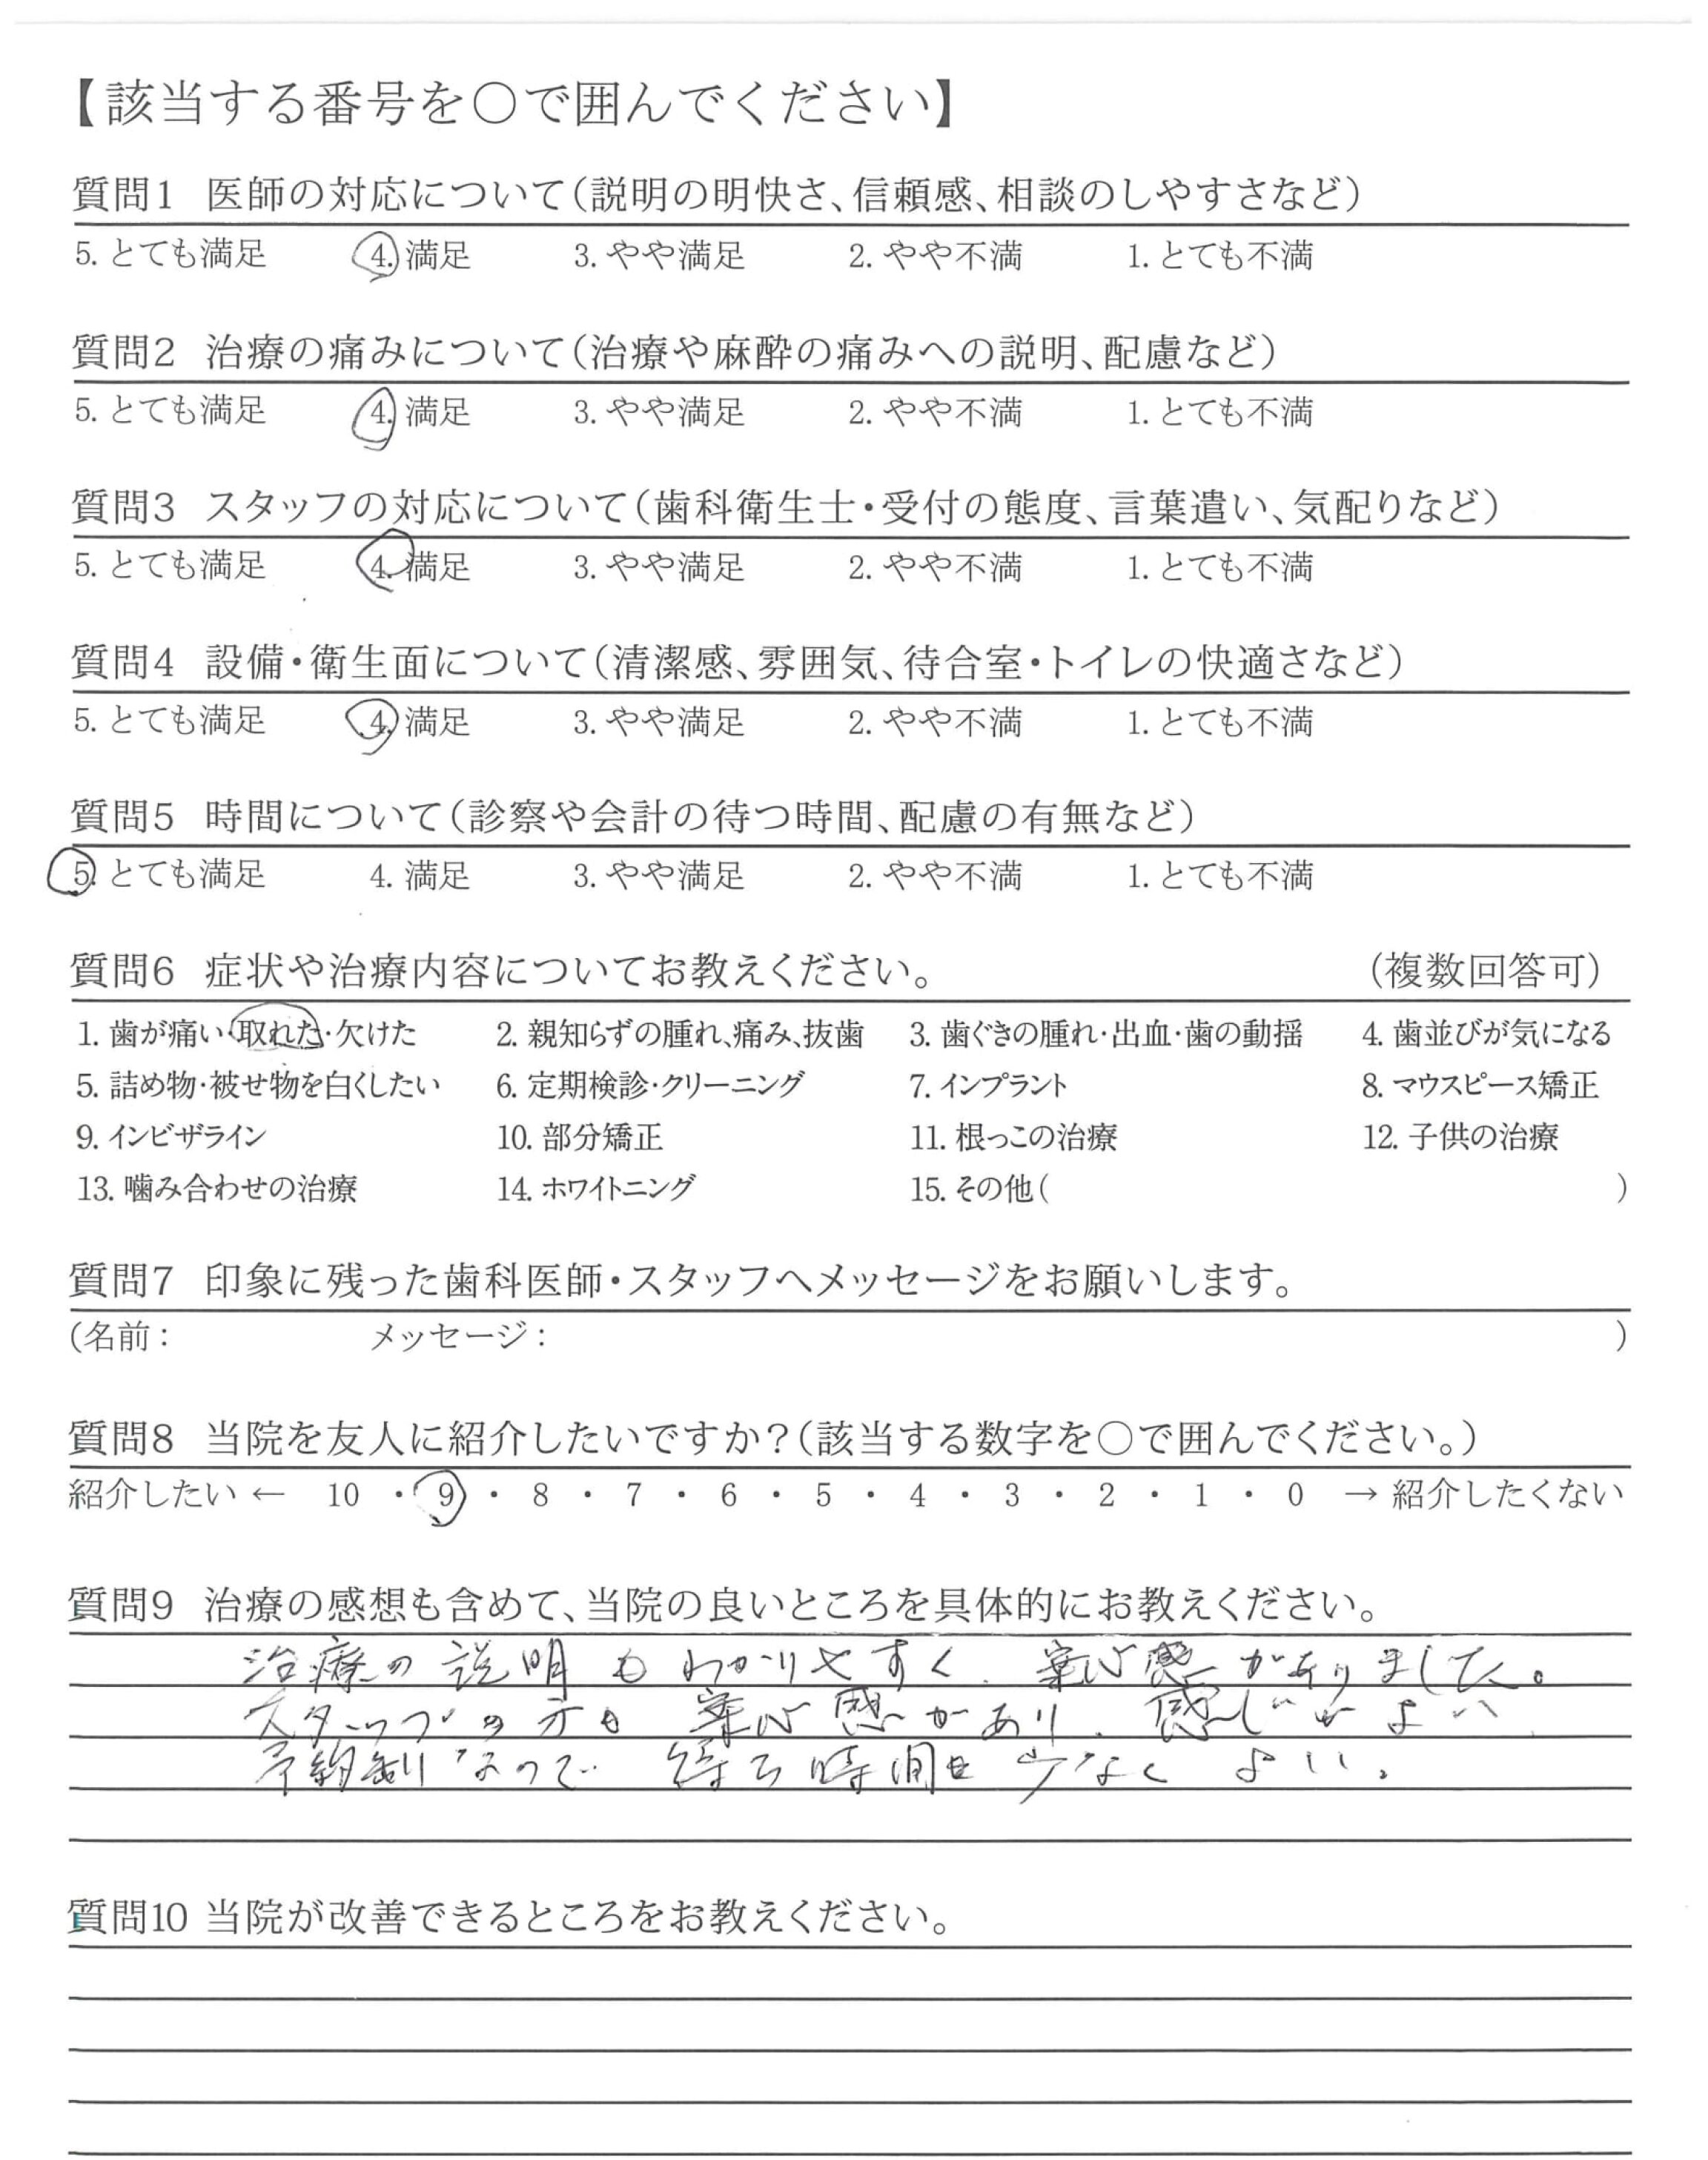 【該当する番号を○で囲んでください】
質問1 医師の対応について(説明の明快さ、信頼感、相談のしやすさなど)
5. とても満足 4. 満足 3. やや満足 2. やや不満 1. とても不満
質問2 治療の痛みについて(治療や麻酔の痛みへの説明、配慮など)
5. とても満足 4. 満足 3. やや満足 2. やや不満 1. とても不満
質問3 スタッフの対応について(歯科衛生士・受付の態度、言葉遣い、気配りなど)
5. とても満足 4. 満足 3. やや満足 2. やや不満 1. とても不満
質問4 設備・衛生面について(清潔感、雰囲気、待合室・トイレの快適さなど)
5. とても満足 4. 満足 3. やや満足 2. やや不満 1. とても不満
質問5 時間について(診察や会計の待つ時間、配慮の有無など)
5. とても満足 4. 満足 3. やや満足 2. やや不満 1. とても不満
質問6 症状や治療内容についてお教えください。 (複数回答可)
1. 歯が痛い・取れた・欠けた 2. 親知らずの腫れ、痛み、抜歯 3. 歯ぐきの腫れ・出血・歯の動揺 4. 歯並びが気になる
5. 詰め物・被せ物を白くしたい 6. 定期検診・クリーニング 7. インプラント 8. マウスピース矯正
9. インビザライン 10. 部分矯正 11. 根っこの治療 12. 子供の治療
13. 噛み合わせの治療 14. ホワイトニング 15. その他( )
質問7 印象に残った歯科医師・スタッフへメッセージをお願いします。
(名前: メッセージ: )
質問8 当院を友人に紹介したいですか?(該当する数字を○で囲んでください。)
紹介したい ← 10 ・ 9 ・ 8 ・ 7 ・ 6 ・ 5 ・ 4 ・ 3 ・ 2 ・ 1 ・ 0 → 紹介したくない
質問9 治療の感想も含めて、当院の良いところを具体的にお教えください。
治療の説明もわかりやすく、安心感がありました。
スタッフの方も安心感があり、感じがよい
予約制なので待ち時間も少なくよい。
質問10 当院が改善できるところをお教えください。